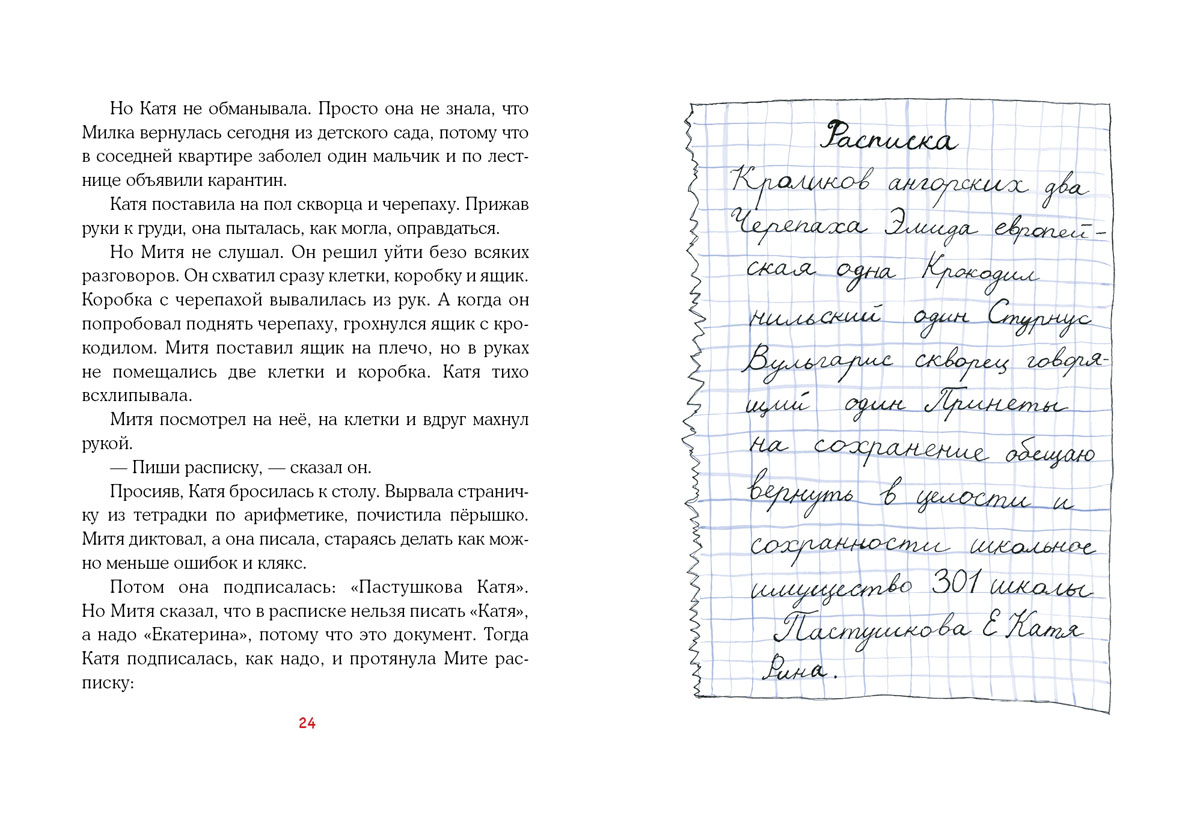 Но Катя не обманывала. Просто она не знала, что
Милка вернулась сегодня из детского сада, потому что
в соседней квартире заболел один мальчик и по лест-
нице объявили карантин.
Катя поставила на пол скворца и черепаху. Прижав
руки к груди, она пыталась, как могла, оправдаться.
Но Митя не слушал. Он решил уйти безо всяких
разговоров. Он схватил сразу клетки, коробку и ящик.
Коробка с черепахой вывалилась из рук. А когда он
попробовал поднять черепаху, грохнулся ящик с кро-
кодилом. Митя поставил ящик на плечо, но в руках
не помещались две клетки и коробка. Катя тихо
всхлипывала.
Митя посмотрел на неё, на клетки и вдруг махнул
рукой.
— Пиши расписку, — сказал он.
Просияв, Катя бросилась к столу. Вырвала странич-
ку из тетрадки по арифметике, почистила пёрышко.
Митя диктовал, а она писала, стараясь делать как мож-
но меньше ошибок и клякс.
Потом она подписалась: «Пастушкова Катя».
Но Митя сказал, что в расписке нельзя писать «Катя»,
а надо «Екатерина», потому что это документ. Тогда
Катя подписалась, как надо, и протянула Мите рас-
писку:
24
Расписка
Кроликов ангорских два
Черепаха Эмида европей-
ская одна Крокодил
нильский один Стурнус
Вульгарис скворец говоря-
щий один Принеты
на сохранение обещаю
вернуть в целости и
сохранности школьное
имущество 301 школы
Пастушкова Е Катя
Рина.